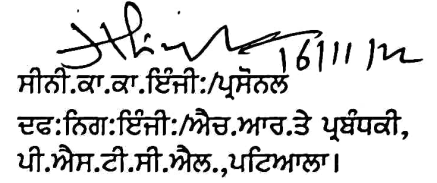 16/11/22
ਸੀਨੀ.ਕਾ.ਕਾ.ਇੰਜੀ:/ਪ੍ਰਸੋਨਲ
ਦਫ:ਨਿਗ:ਇੰਜੀ:/ਐਚ.ਆਰ.ਤੇ ਪ੍ਰਬੰਧਕੀ,
ਪੀ.ਐਸ.ਟੀ.ਸੀ.ਐਲ.,ਪਟਿਆਲਾ।